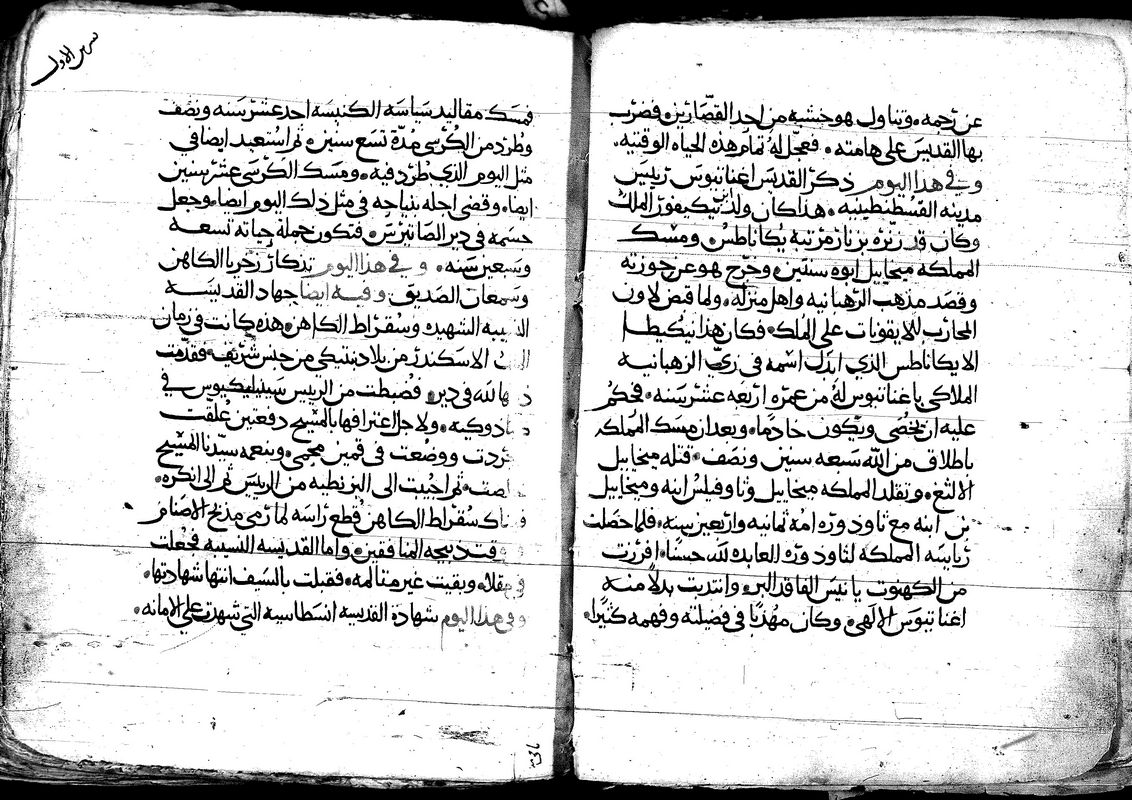 عن رحمه وتناول هو خشبه من احد القصارين فضرب
بها القديس على هامته فعجل له تمام هذه الحياه الوقتيه
وفي هذا اليوم ذكر القديس اغناتيوس رييس
مدينه القسطنطينيه هذا كان ولد نيكيفور الملك
وكان قد زيره بزنار مرتبه بكاناطس ومسك
المملكه ميخاييل ابوه سنتين وخرج هو عن حوزته
وقصد مذهب الرهبانيه واهل منزله ولما قبض لاون
المحارب للايقونات على الملك فكان هذا نيكيطا
الايكاناطس الذي ابدل اسمه في زي الرهبانيه
الملاكي باغناتيوس له من عمره اربعه عشر سنه فحكم
عليه ان يخصى ويكون خادما وبعد ان مسك المملكه
باطلاق من الله سبعه سنين ونصف قتله ميخاييل
الالثغ وتقلد المملكه ميخاييل وثاوفيلس ابنه وميخاييل
بن ابنه مع ثاودوره امه ثمانيه واربعين سنه فلما حصلت
رياسه المملكه لثاودوره العابده لله حسنا افرزت
من الكهنوت يانيس الفاقد البر وانتدبت بدلا منه
اغناتيوس الالهي وكان مهذبا في فضيلته وفهمه كثيرا
سير الاول
فمسك مقاليد سياسه الكنيسه احد عشر سنه ونصف
وطرد من الكرسي مدة تسع سنين ثم استعيد ايضا في
مثل اليوم الذي طرد فيه ومسك الكرسي عشر سنين
ايضا وقضى اجله بنياحه في مثل ذلك اليوم ايضا وجعل
جسمه في دير الصاتيرس فتكون جملة حياته تسعه
وسبعين سنه وفي هذا اليوم تذكار زخريا الكاهن
وسمعان الصديق وفيه ايضا جهاد القديسه
الشهيده وسقراط الكاهن هذه كانت في زمان
الاسكندر من بلاد نيتيكي من جنس شريف فقدمت
لله في دير فضبطت من الرييس سيليليكيوس في
ولاجل اعترافها بالمسيح دفعتين علقت
ووضعت في قمين محمي وبنعمه سيدنا المسيح
ثم اجيبت الى البزنطيه من الرييس ثم الى انكره
سقراط الكاهن قطع راسه لما رمى مذبح الاصنام
ذبيحه المنافقين واما القديسه النسيبه فجعلت
وبقيت غير متالمه فقبلت بالسيف انتها شهادتها
وفي هذا اليوم شهادة القديسه انسطاسيه التي شهدت على الامانه